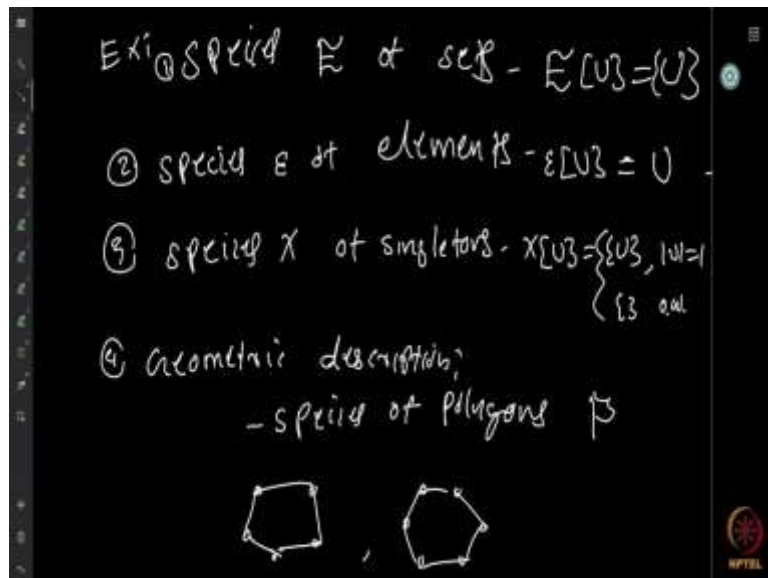 Ex: ① Species E of sets - E[U] = {U}
② Species ε of elements - ε[U] = U -
③ Species X of singletons - X[U] = { {U}, |U|=1
{} o.w.
④ Geometric description:
- Species of polygons P
,
NPTEL